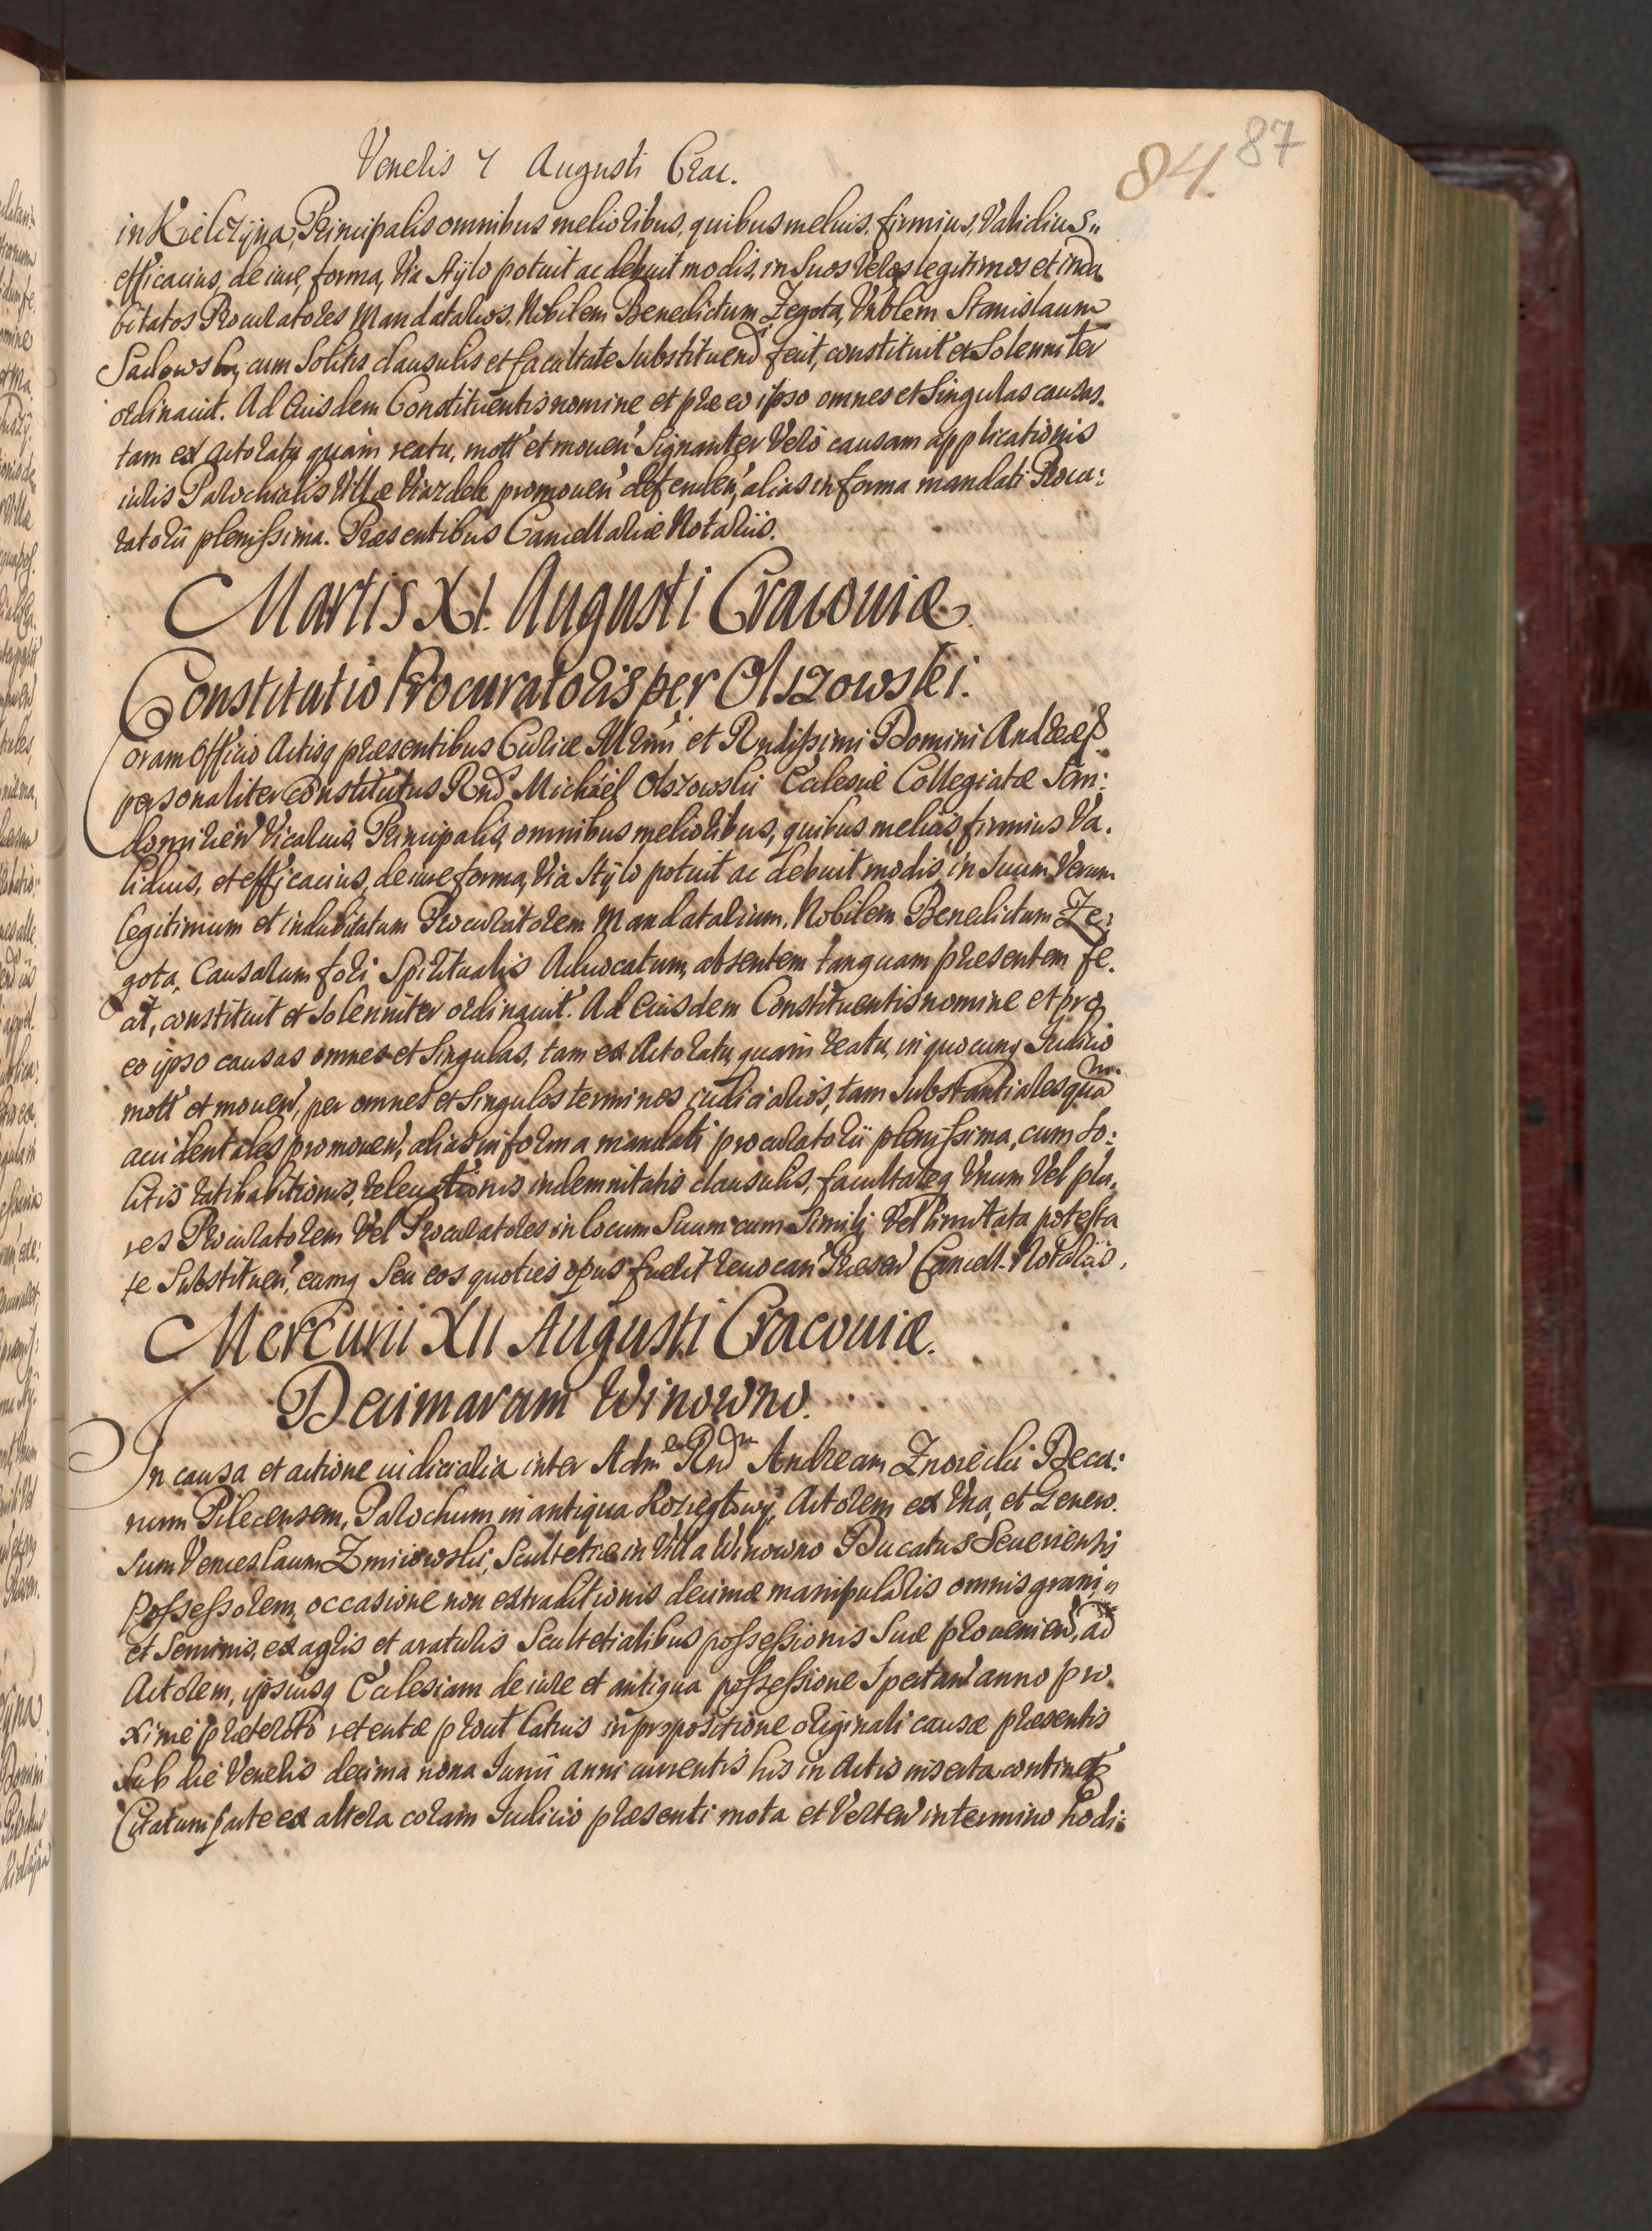 Veneris 7 Augusti Crac.
84. 87
in Kielczyna, Principalis omnibus melioribus, quibus melius, firmius, Validius
efficacius, de iure, forma, Via stylo potuit ac debuit modis, in Suos Veros legitimos et indu
bitatos Procuratores Mandatarios, Nobilem Benedictum Zegota, Stanislaum
Sadowsky, cum Solitis clausulis et facultate Substituend fecit, constituit et Solenniter
ordinauit. Ad Eiusdem Constituentis nomine et pro eo ipso omnes et Singulas causas
tam ex Actoratu quam reatu, mott et mouen Signanter Vero causam applicationis
iuris Parochialis Villæ promouen defenden, alias in forma mandati Procu:
ratorii plenissima. Præsentibus Cancellariæ Notariis.
Martis XI. Augusti Cracouiæ.
Constitutio Procuratoris per Olszowski.
Coram Officio Actisq præsentibus Curiæ Illrmi et Rndissimi Domini Andreæ
personaliter Constitutus Rnd Michael Olszowski Ecclesiæ Collegiatæ San:
domirien Vicarius, Principalis, omnibus melioribus, quibus melius, firmius Va.
lidius, et efficacius, de iure forma, Via Stylo potuit ac debuit modis, in Suum Verum
legitimum et indubitatum Procuratorem Mandatarium, Nobilem Benedictum Ze:
gota, Causarum fori Spiritualis Aduocatum, absentem tanquam præsentem fe.
cit, constituit et Solenniter ordinauit. Ad Eiusdem Constituentis nomine et pro
eo ipso causas omnes et Singulas, tam ex Actoratu, quam reatu, in quocunq Iudicio
mott et mouen, per omnes et Singulos terminos iudiciarios, tam Substantiales quam
accidentales promouen, alias in forma mandati procuratorii plenissima, cum So:
litis ratihabitionis, releuationis indemnitatis clausulis, facultateq Vnum Vel plu.
res Procuratorem Vel Procuratores in locum Suum cum Simili Vel limitata potesta
te Substituen, eumq Seu eos quoties opus fuerit reuocan Præsen Cancell. Notariis.
Mercurii XII Augusti Cracouiæ.
Decimarum Winowno.
In causa et actione iudiciaria inter Adm Rnd Andream Znoiecki Deca:
num Pilecensem, Parochum in antiqua Kozieglowy, Actorem ex Vna, et Genero.
sum Venceslaum Zmiiowski, Scultetiæ in Villa Winowno Ducatus Seueriensis
Possessorem, occasione non extraditionis decimæ manipularis omnis grani
et Seminis, ex agris et araturis Scultetialibus possessionis Suæ prouenien, ad
Actorem, ipsiusq Ecclesiam de iure et antiqua possessione Spectan anno pro.
ximè præterito retentæ prout latius in propositione originali causæ præsentis
Sub die Veneris decima nona Iunii anni currentis his in Actis inserta continet
Citatum parte ex altera coram Iudicio præsenti mota et Verten in termino hodi: